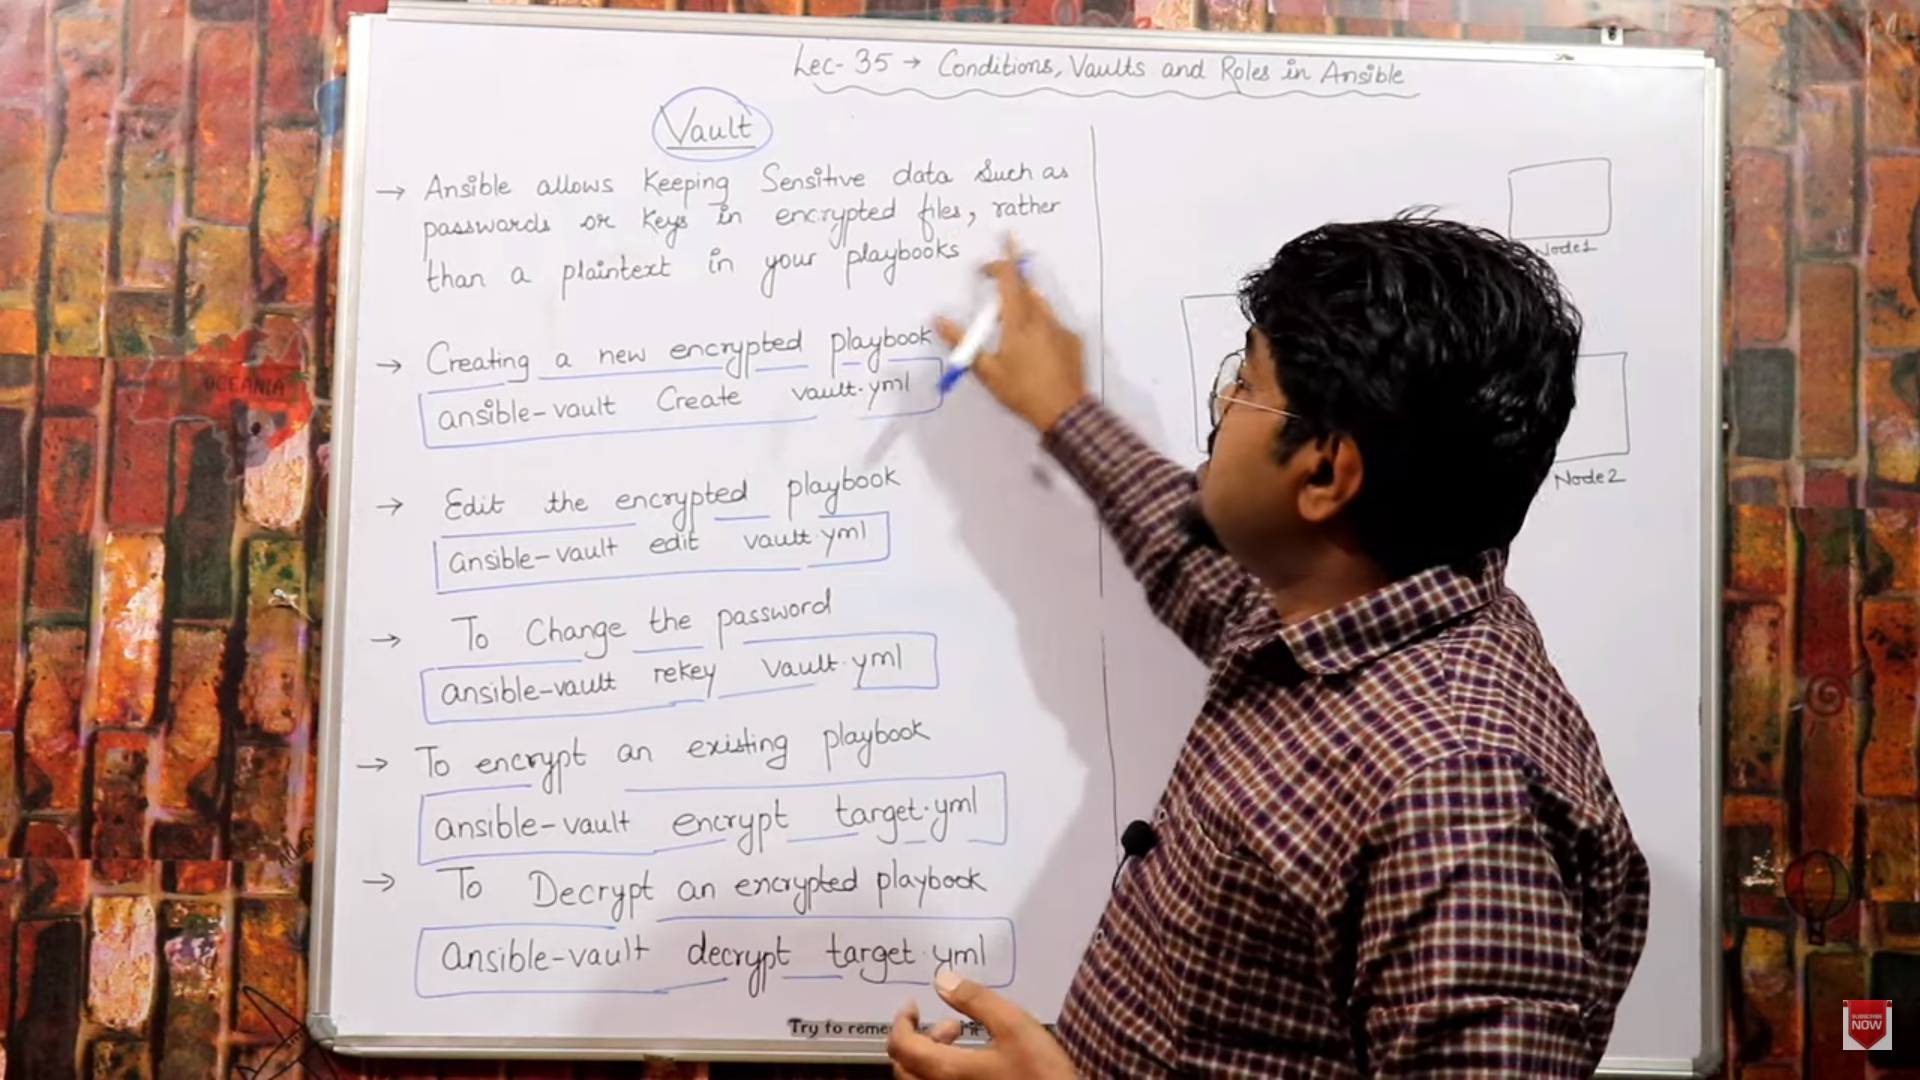 Lec-35 → Conditions, Vaults and Roles in Ansible
Vault
→ Ansible allows Keeping Sensitive data Such as
passwords or Keys in encrypted files, rather
than a plaintext in your playbooks
→ Creating a new encrypted playbook
ansible-vault Create vault.yml
→ Edit the encrypted playbook
ansible-vault edit vault.yml
→ To Change the password
ansible-vault rekey vault.yml
→ To encrypt an existing playbook
ansible-vault encrypt target.yml
→ To Decrypt an encrypted playbook
Ansible-vault decrypt target.yml
Node1
Node2
OCEANIA
Try to
SUBSCRIBE
NOW